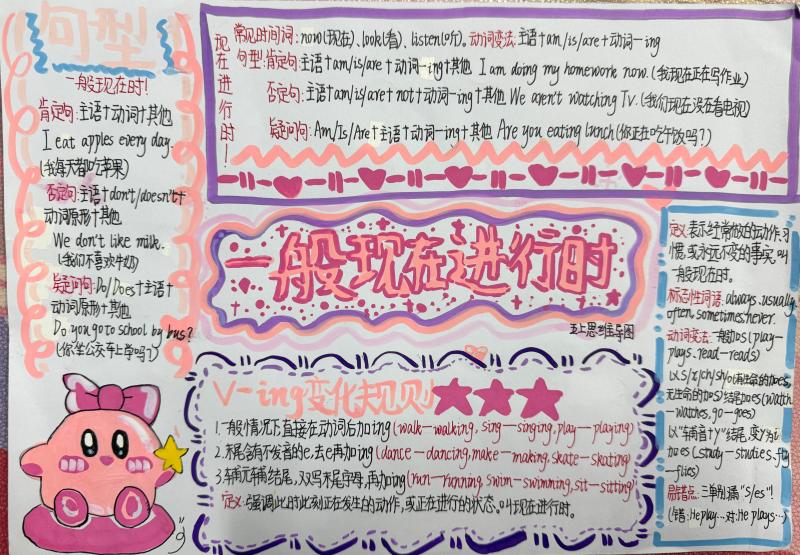 句型
一般现在时!
肯定句:主语+动词+其他
I eat apples every day.
(我每天都吃苹果)
否定句:主语+don't/doesn't+
动词原形+其他
We don't like milk.
(我们不喜欢牛奶)
疑问句:Do/Does+主语+
动词原形+其他
Do you go to school by bus?
(你坐公交车上学吗?)
现在进行时!
常见时间词:now(现在)、look(看)、listen(听).动词变法:主语+am/is/are+动词-ing
句型:肯定句:主语+am/is/are+动词-ing+其他 I am doing my homework now.(我现在正在写作业)
否定句:主语+am/is/are+not+动词-ing+其他 We aren't watching Tv.(我们现在没在看电视)
疑问句:Am/Is/Are+主语+动词-ing+其他 Are you eating lunch(你正在吃午饭吗?)
一般现在进行时
五上思维导图
V-ing变化规则
1.一般情况下直接在动词后加ing(walk—walking, sing—singing, play—playing)
2.末尾含有不发音的e,去e再加ing(dance—dancing, make—making, skate—skating)
3.辅元辅结尾,双写末尾字母,再加ing(run—running, swim—swimming, sit—sitting)
定义:强调此时此刻正在发生的动作,或正在进行的状态,叫现在进行时。
定义:表示经常做的动作、习
惯,或永远不变的事实,叫
一般现在时。
标志性词语:always, usually,
often, sometimes, never.
动词变法:一般加s(play—
plays, read—reads)
以s/x/ch/sh/o(有生命的加es,
无生命的加s)结尾加es(watch
—watches, go—goes)
以"辅音+y"结尾,变y为i
加es(study—studies, fly
—flies)
易错点:三单别漏"s/es"!
(错:He play... 对:He plays...)